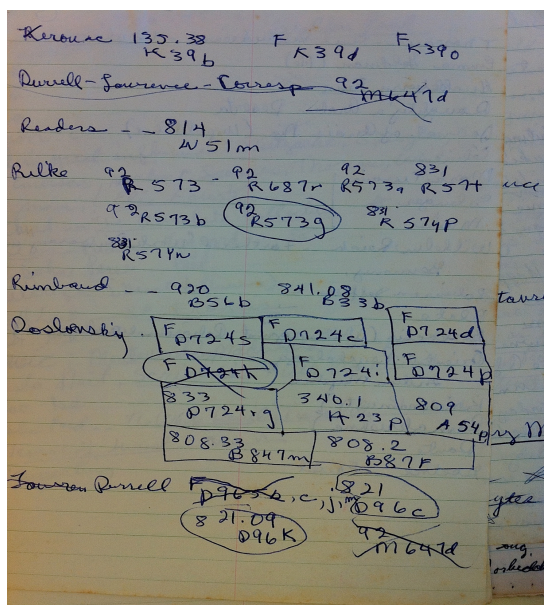 Kerouac 135.38 K39b F K39d F K390
Durrell-Lawrence-Corresp 92 M647d
Readers - - 814 W51m
Rilke 92 R573 - 92 R687r 92 R573a 831 R574
92 R573b 92 R573g 831 R574p
831 R574n
Rimbaud - - 920 B56b 841.08 B33b
Dostovsky F D724s F D724c F D724d
F D724h F D724i F D724p
833 D724rg 340.1 H23p 809 A54p
808.33 B847m 808.2 B87F
D965b, c, j, m 821 D96c
821.09 D96K 92 M647d